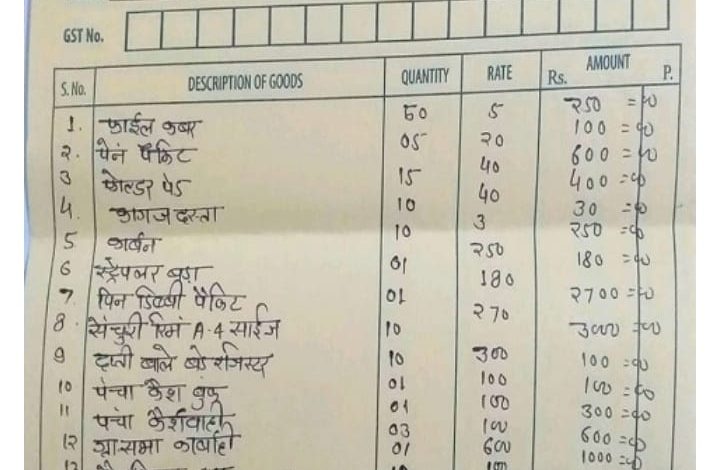 GST No.
S. No. DESCRIPTION OF GOODS QUANTITY RATE AMOUNT
Rs. P.
1. फाईल कबर 50 5 250 =00
2. पेन पैकिट 05 20 100 =00
3 फोल्डर पेड 15 40 600 =00
4. कागज दस्ता 10 40 400 =00
5 कार्बन 10 3 30 =00
6 स्ट्रेपलर बड़ा 01 250 250 =00
7. पिन डिब्बी पैकिट 01 180 180 =00
8. सेंचुरी रिमं A.4 साईज 10 270 2700 =00
9 दफ्ती बाले बडे रजिस्टर 10 300 3000 =00
10 पंचा कैश बुक 01 100 100 =00
11 पंचा कार्यवाही 01 100 100 =00
12 ग्रासभा कार्वाही 03 100 300 =00
01 600 600 =00
1000 =00